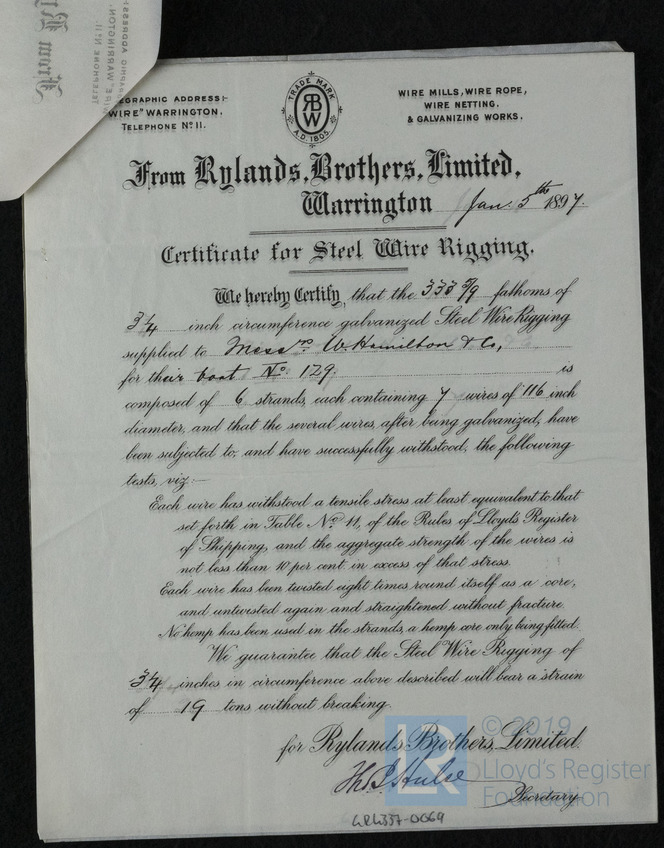 TELEGRAPHIC ADDRESS:-
"WIRE" WARRINGTON.
TELEPHONE No 11.
TRADE MARK
RBW
A.D. 1805.
WIRE MILLS, WIRE ROPE,
WIRE NETTING.
& GALVANIZING WORKS.
From Rylands, Brothers, Limited,
Warrington Jan. 5th 1897.
Certificate for Steel Wire Rigging.
We hereby Certify, that the 333 5/9 fathoms of
3 1/4 inch circumference galvanized Steel Wire Rigging
supplied to Messrs W. Hamilton & Co,
for their boat No. 129. is
composed of 6 strands, each containing 7 wires of .116 inch
diameter, and that the several wires, after being galvanized, have
been subjected to, and have successfully withstood, the following
tests, viz:—
Each wire has withstood a tensile stress at least equivalent to that
set forth in Table No 11, of the Rules of Lloyd's Register
of Shipping, and the aggregate strength of the wires is
not less than 10 per cent in excess of that stress.
Each wire has been twisted eight times round itself as a core,
and untwisted again and straightened without fracture.
No hemp has been used in the strands, a hemp core only being fitted.
We guarantee that the Steel Wire Rigging of
3 1/4 inches in circumference above described will bear a strain
of 19 tons without breaking.
for Rylands Brothers, Limited.
Secretary
LR
© 2019
Lloyd's Register
Foundation